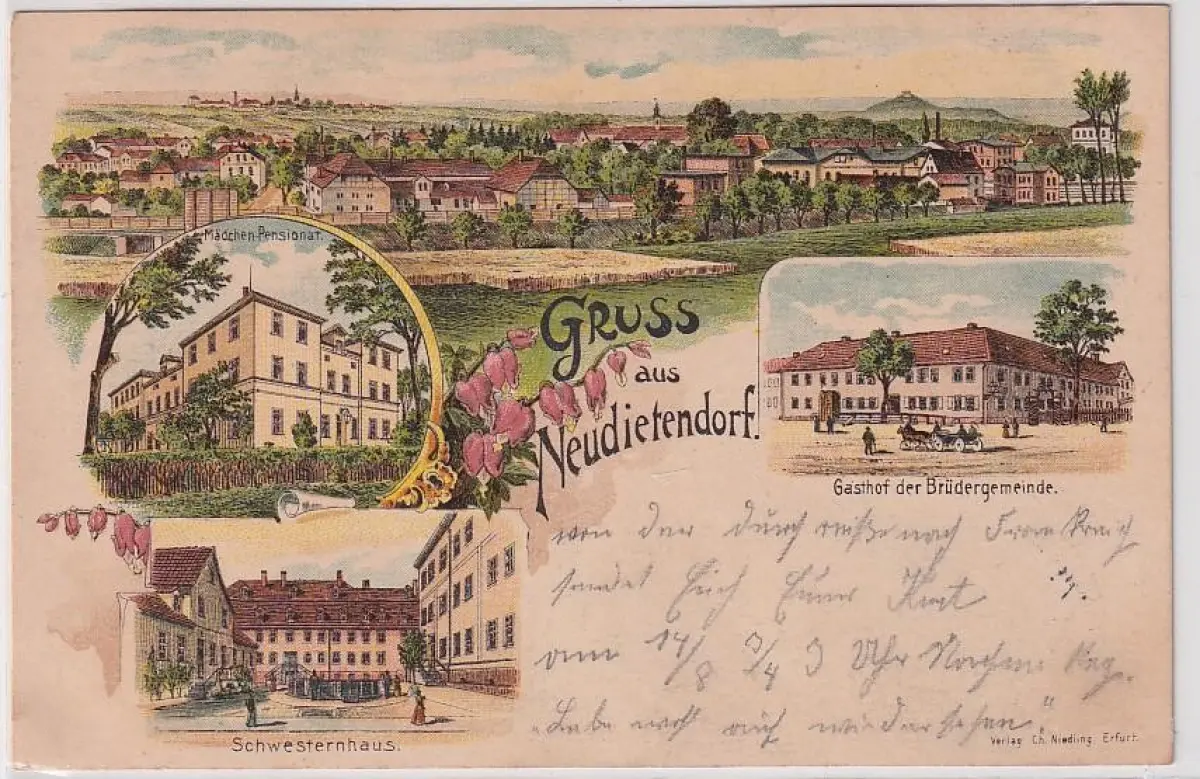 Mädchen-Pensionat.
Gruss
aus
Neudietendorf.
Gasthof der Brüdergemeinde.
von der Durchreiße nach Frankreich
sendet Euch Euer Kurt
am 14/8 3/4 3 Uhr Nachmittag.
„Lebe wohl auf wiedersehen"
Schwesternhaus.
Verlag Ch. Niedling, Erfurt.